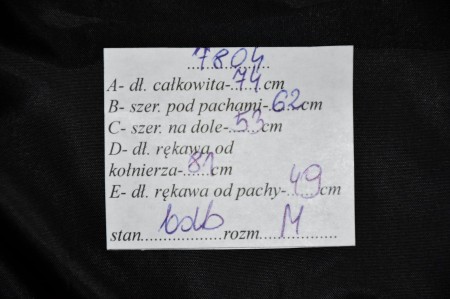 7804
A- dł. całkowita-74cm
B- szer. pod pachami-62cm
C- szer. na dole-53cm
D- dł. rękawa od
kołnierza-81cm
E- dł. rękawa od pachy-49cm
stan bdb rozm. M